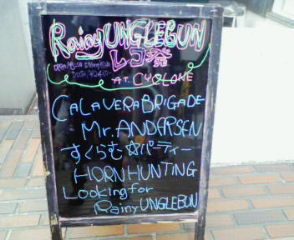 Rainy UNGLEBUN
レコ発
AT. CYCLONE
CALAVERA BRIGADE
Mr. ANDERSEN
すくらむ☆パーティー
HORN HUNTING
Looking for
Rainy UNGLEBUN